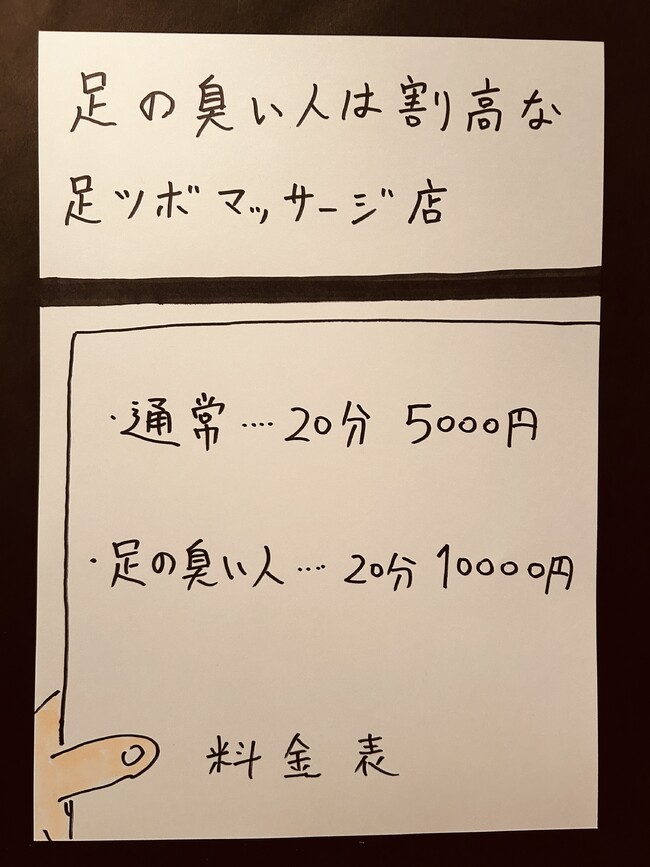 足の臭い人は割高な
足ツボマッサージ店
・通常…. 20分 5000円
・足の臭い人… 20分 10000円
料金表